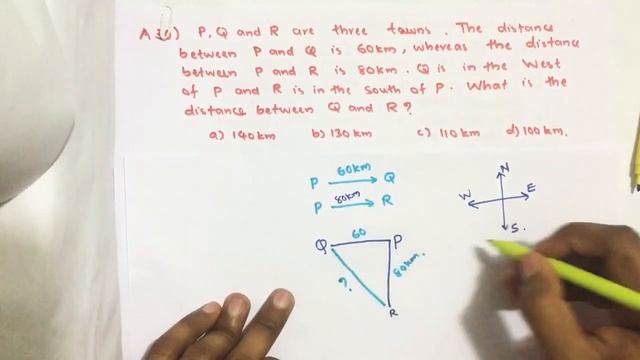 P, Q and R are three towns. The distance
between P and Q is 60km, whereas the distance
between P and R is 80km. Q is in the West
of P and R is in the South of P. What is the
distance between Q and R?
a) 140km b) 130km c) 110km d) 100km.
60km
P → Q
80km
P → R
N
W E
S.
60
Q P
80km.
?
R